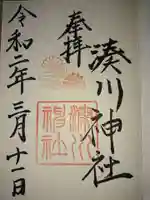 奉拝
湊川神社
令和二年三月十一日
湊川神社